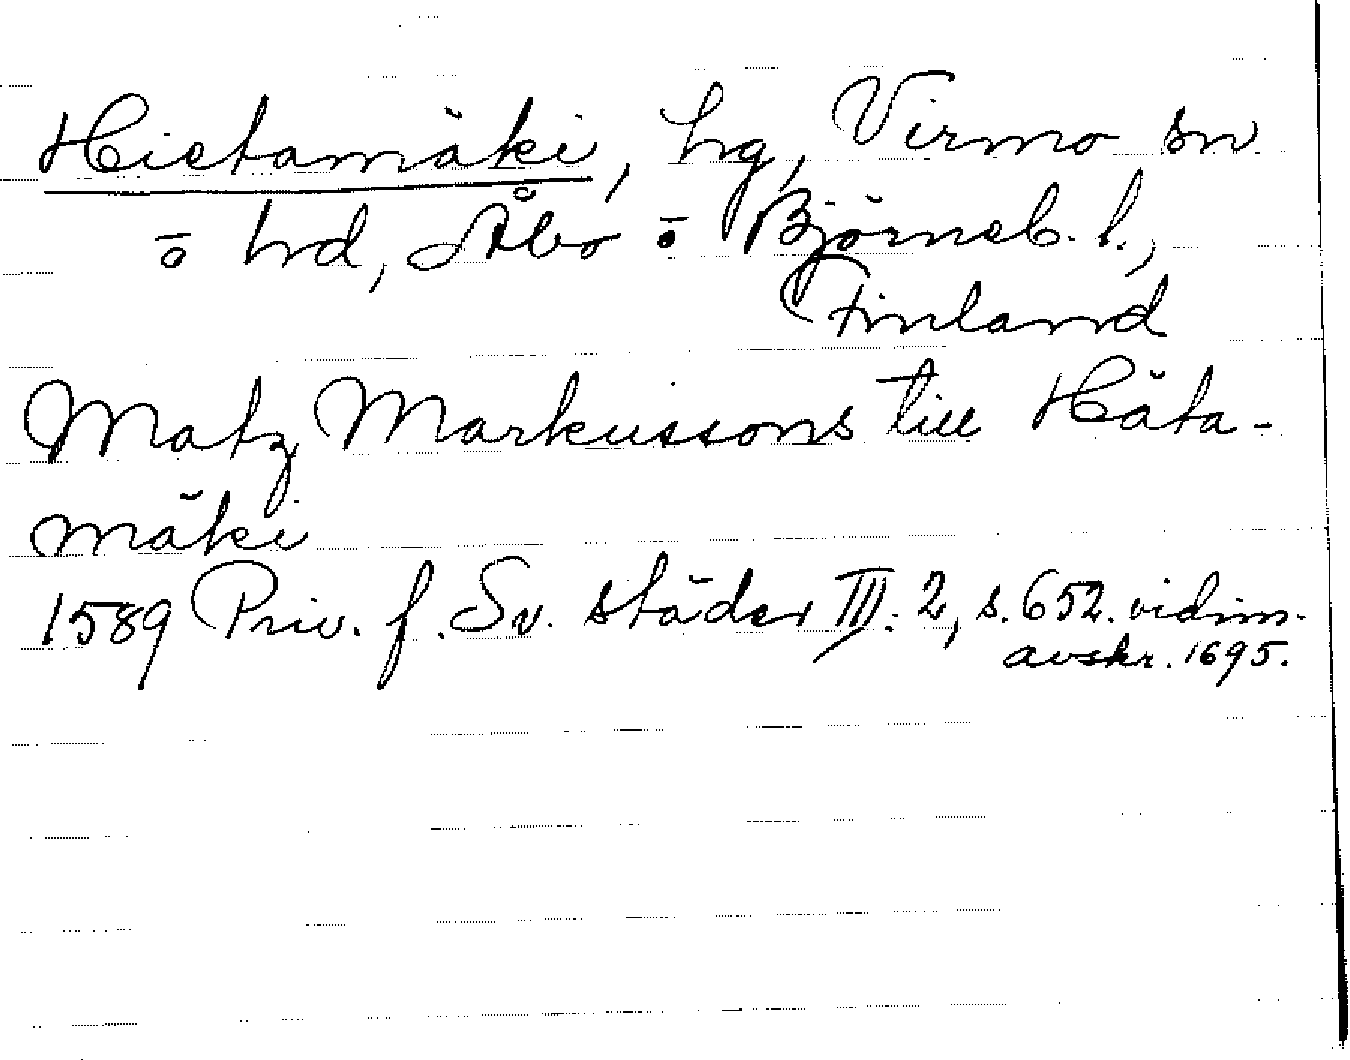 Hietamäki, hg, Virmo sn
o hd, Åbo o Björneb. l.,
Finland
Matz Markussons till Häta-
mäki
1589 Priv. f. Sv. städer III: 2, s. 652. vidim.
avskr. 1695.